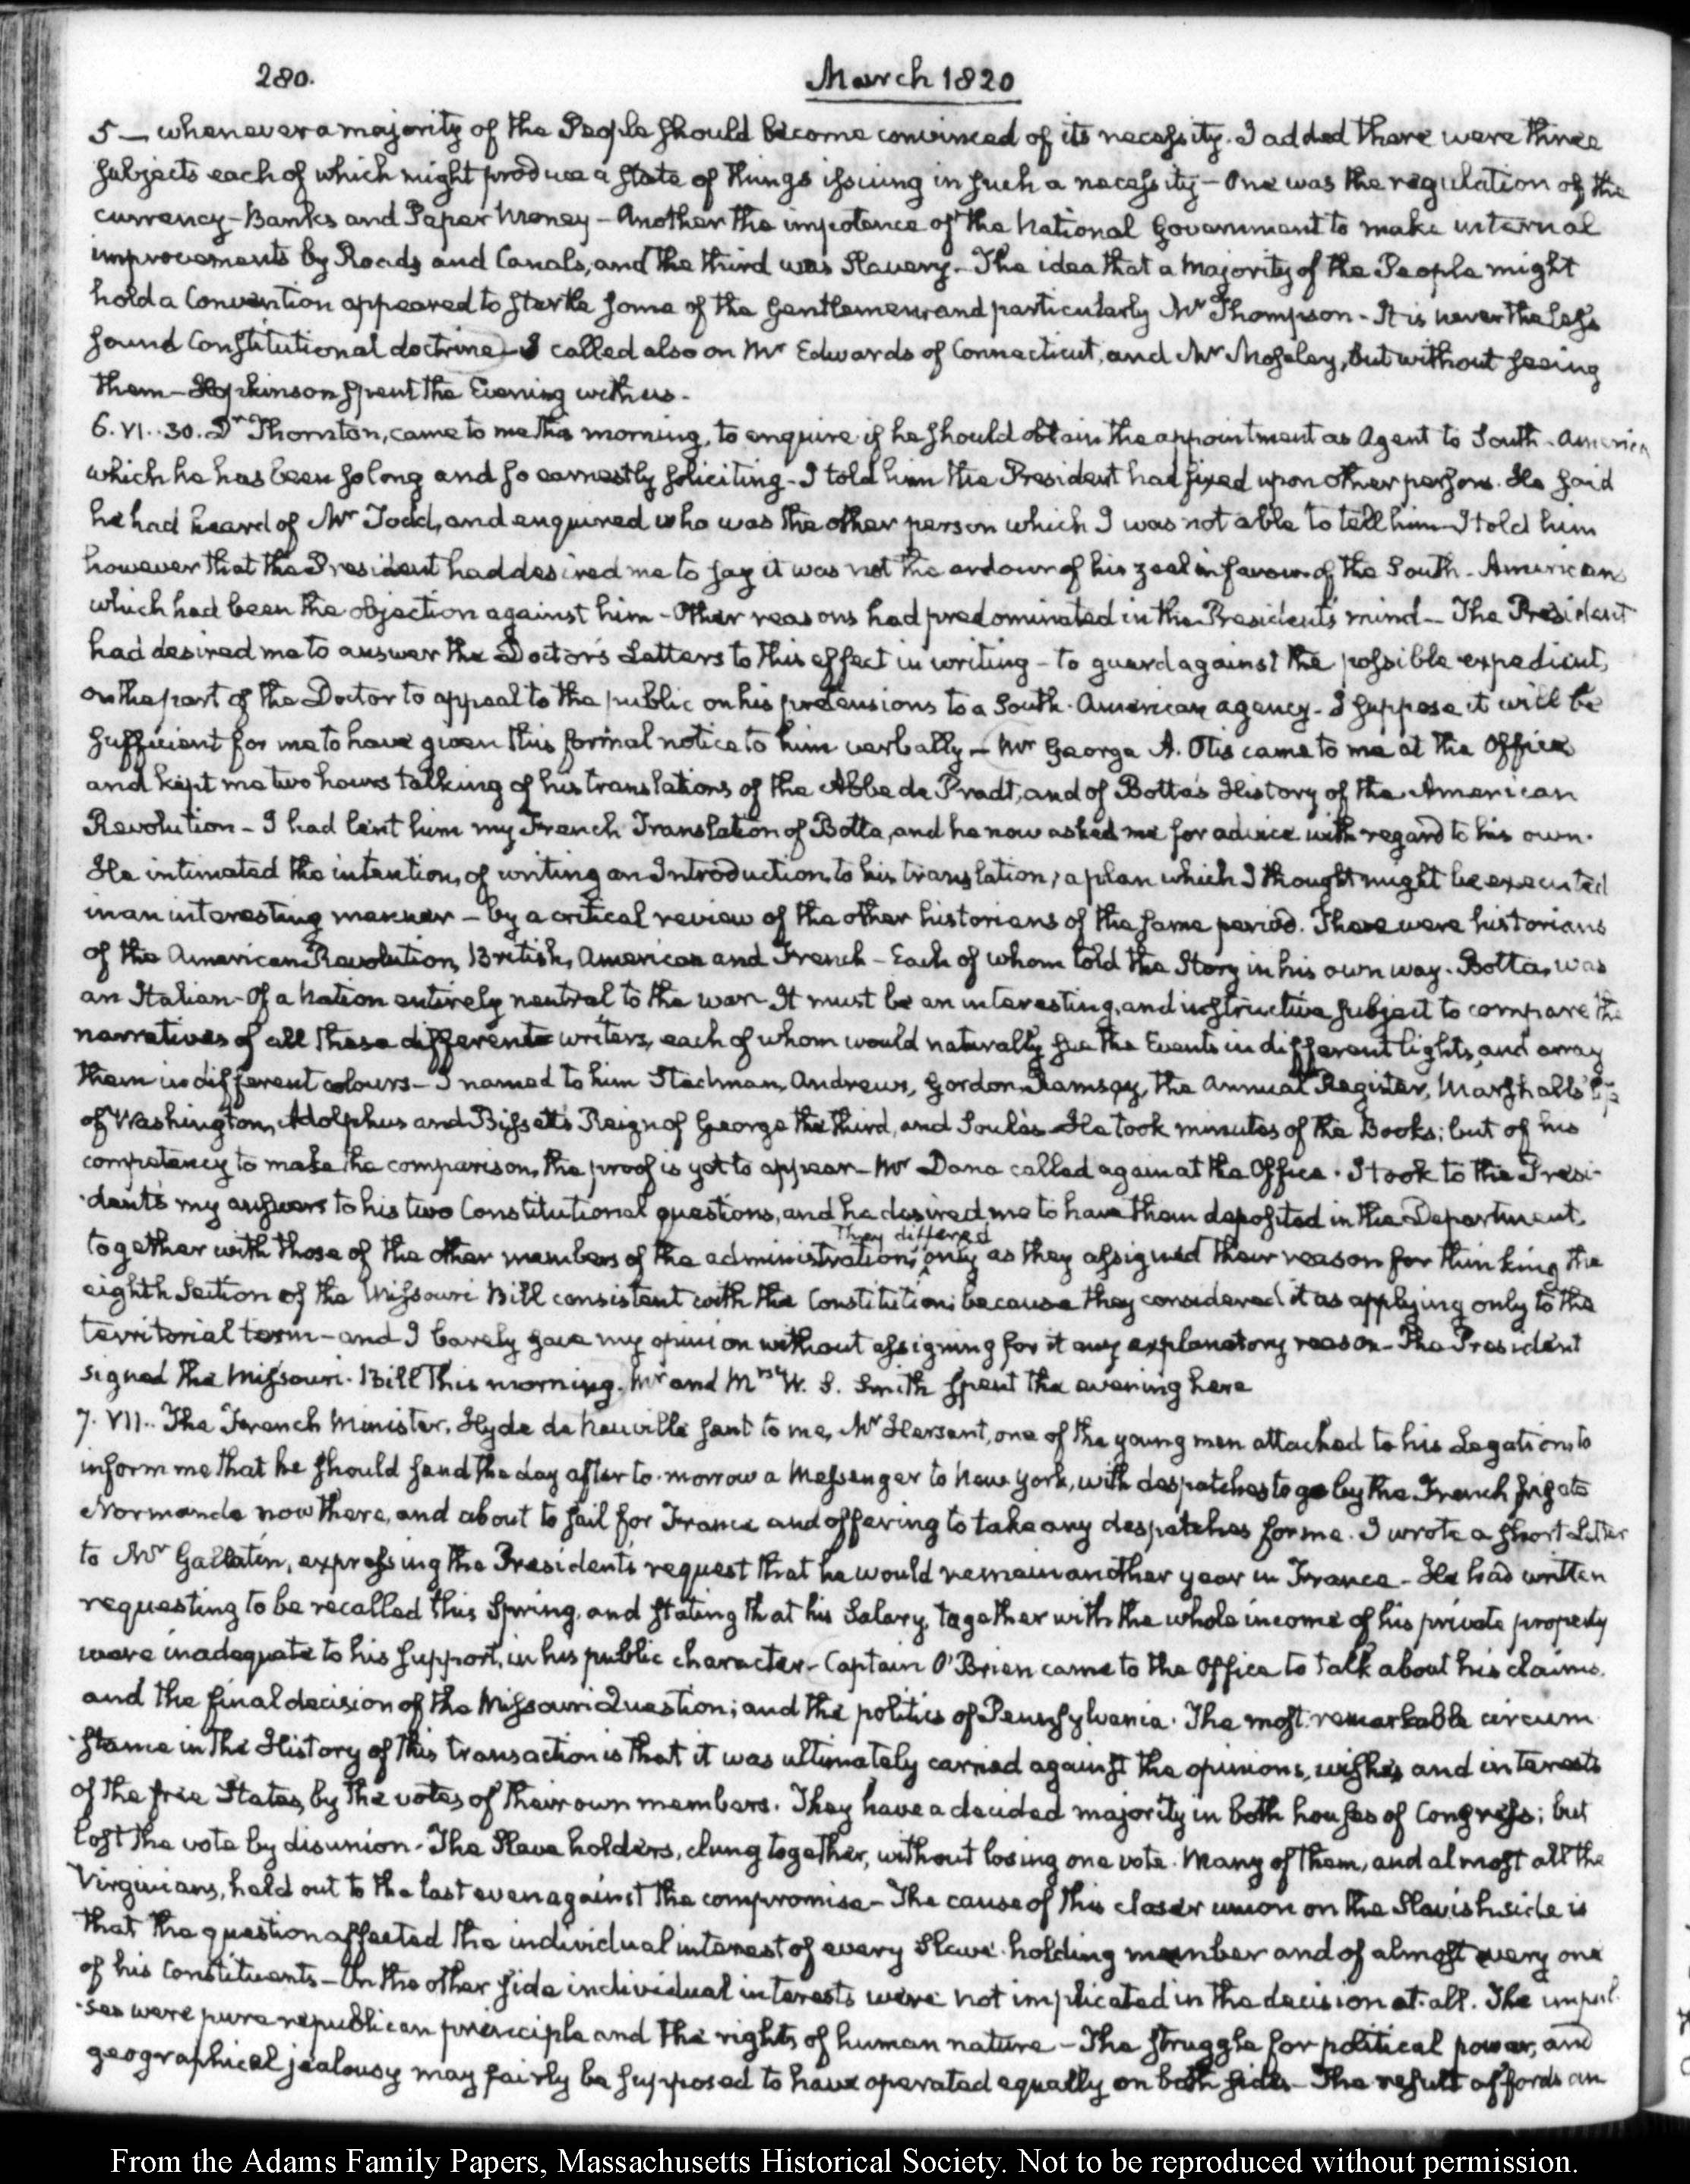 280.
March 1820
5 — whenever a majority of the People should become convinced of its necessity. I added there were three
subjects each of which might produce a state of things issuing in such a necessity — One was the regulation of the
currency — Banks and Paper Money — Another the impotence of the National Government to make internal
improvements by Roads and Canals, and the third was Slavery — The idea that a Majority of the People might
hold a Convention appeared to startle some of the Gentlemen and particularly Mr Thompson — It is nevertheless
sound Constitutional doctrine — I called also on Mr Edwards of Connecticut, and Mr Moseley, but without seeing
them — Hopkinson spent the Evening with us.
6. VI..30. Dr Thornton, came to me this morning, to enquire if he should obtain the appointment as Agent to South-America
which he has been so long and so earnestly soliciting — I told him the President had fixed upon other persons. He said
he had heard of Mr Todd, and enquired who was the other person which I was not able to tell him — I told him
however that the President had desired me to say it was not the ardour of his zeal in favour of the South-Americans
which had been the objection against him — Other reasons had predominated in the President's mind — The President
had desired me to answer the Doctor's Letters to this effect in writing — to guard against the possible expedient,
on the part of the Doctor to appeal to the public on his pretensions to a South-American agency — I suppose it will be
sufficient for me to have given this formal notice to him verbally — Mr George A. Otis came to me at the Office
and kept me two hours talking of his translations of the Abbe de Pradt, and of Botta's History of the American
Revolution — I had lent him my French Translation of Botta, and he now asked me for advice with regard to his own.
He intimated the intention, of writing an Introduction to his translation; a plan which I thought might be executed
in an interesting manner — by a critical review of the other historians of the same period. There were historians
of the American Revolution, British, American and French — Each of whom told the Story in his own way. Botta, was
an Italian — Of a Nation entirely neutral to the war — It must be an interesting, and instructive subject to compare the
narratives of all these different writers, each of whom would naturally see the Events in different lights, and array
them in different colours — I named to him Stedman, Andrews, Gordon, Ramsay, the Annual Register, Marshall's Life
of Washington, Adolphus and Bisset's Reign of George the third, and Soulés — He took minutes of the Books; but of his
competency to make the comparison, the proof is yet to appear — Mr Dana called again at the Office. I took to the Presi-
dent's my answers to his two Constitutional questions, and he desired me to have them deposited in the Department,
They differed
together with those of the other members of the administration, only as they assigned their reason for thinking the
eighth Section of the Missouri Bill consistent with the Constitution; because they considered it as applying only to the
territorial term — and I barely gave my opinion without assigning for it any explanatory reason — The President
signed the Missouri-Bill this morning. Mr and Mrs W. S. Smith spent the evening here
7. VII.. The French Minister, Hyde de Neuville sent to me, Mr Hersant, one of the young men attached to his Legation, to
inform me that he should send the day after to-morrow a Messenger to New York, with despatches to go by the French frigate
Normande now there, and about to sail for France and offering to take any despatches for me. I wrote a short Letter
to Mr Gallatin, expressing the President's request that he would remain another year in France — He had written
requesting to be recalled this Spring, and stating that his Salary, together with the whole income of his private property
were inadequate to his support, in his public character — Captain O'Brien came to the Office to talk about his claims,
and the final decision of the Missouri Question; and the politics of Pennsylvania. The most remarkable circum-
stance in the History of this transaction is that it was ultimately carried against the opinions, wishes and interests
of the free States, by the votes of their own members. They have a decided majority in both houses of Congress; but
lost the vote by disunion. The Slave holders, clung together, without losing one vote. Many of them, and almost all the
Virginians, held out to the last even against the compromise — The cause of this closer union on the Slavish side is
that the question affected the individual interest of every Slave-holding member and of almost every one
of his Constituents — On the other side individual interests were not implicated in the decision at all. The impul-
ses were pure republican principle and the rights of human nature — The struggle for political power, and
geographical jealousy may fairly be supposed to have operated equally on both sides — The result affords an
From the Adams Family Papers, Massachusetts Historical Society. Not to be reproduced without permission.